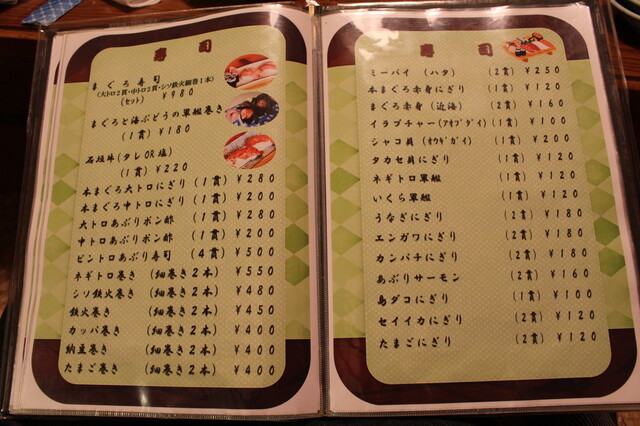 寿司
まぐろ寿司
(大トロ2貫・中トロ2貫・シソ鉄火細巻1本)
(セット) ¥980
まぐろと海ぶどうの軍艦巻き
(1貫) ¥180
石垣牛(タレOR塩)
(1貫) ¥220
本まぐろ大トロにぎり (1貫) ¥280
本まぐろ中トロにぎり (1貫) ¥200
大トロあぶりポン酢 (1貫) ¥280
中トロあぶりポン酢 (1貫) ¥200
ビントロあぶり寿司 (4貫) ¥500
ネギトロ巻き (細巻き2本) ¥550
シソ鉄火巻き (細巻き2本) ¥480
鉄火巻き (細巻き2本) ¥450
カッパ巻き (細巻き2本) ¥400
納豆巻き (細巻き2本) ¥400
たまご巻き (細巻き2本) ¥400
寿司
ミーバイ (ハタ) (2貫) ¥250
本まぐろ赤身にぎり (1貫) ¥120
まぐろ赤身 (近海) (2貫) ¥160
イラブチャー(アオブダイ) (1貫) ¥100
シャコ貝 (オウギガイ) (1貫) ¥200
タカセ貝にぎり (1貫) ¥120
ネギトロ軍艦 (1貫) ¥120
いくら軍艦 (1貫) ¥120
うなぎにぎり (2貫) ¥180
エンガワにぎり (2貫) ¥180
カンパチにぎり (2貫) ¥180
あぶりサーモン (2貫) ¥160
島ダコにぎり (1貫) ¥100
セイイカにぎり (2貫) ¥120
たまごにぎり (2貫) ¥120